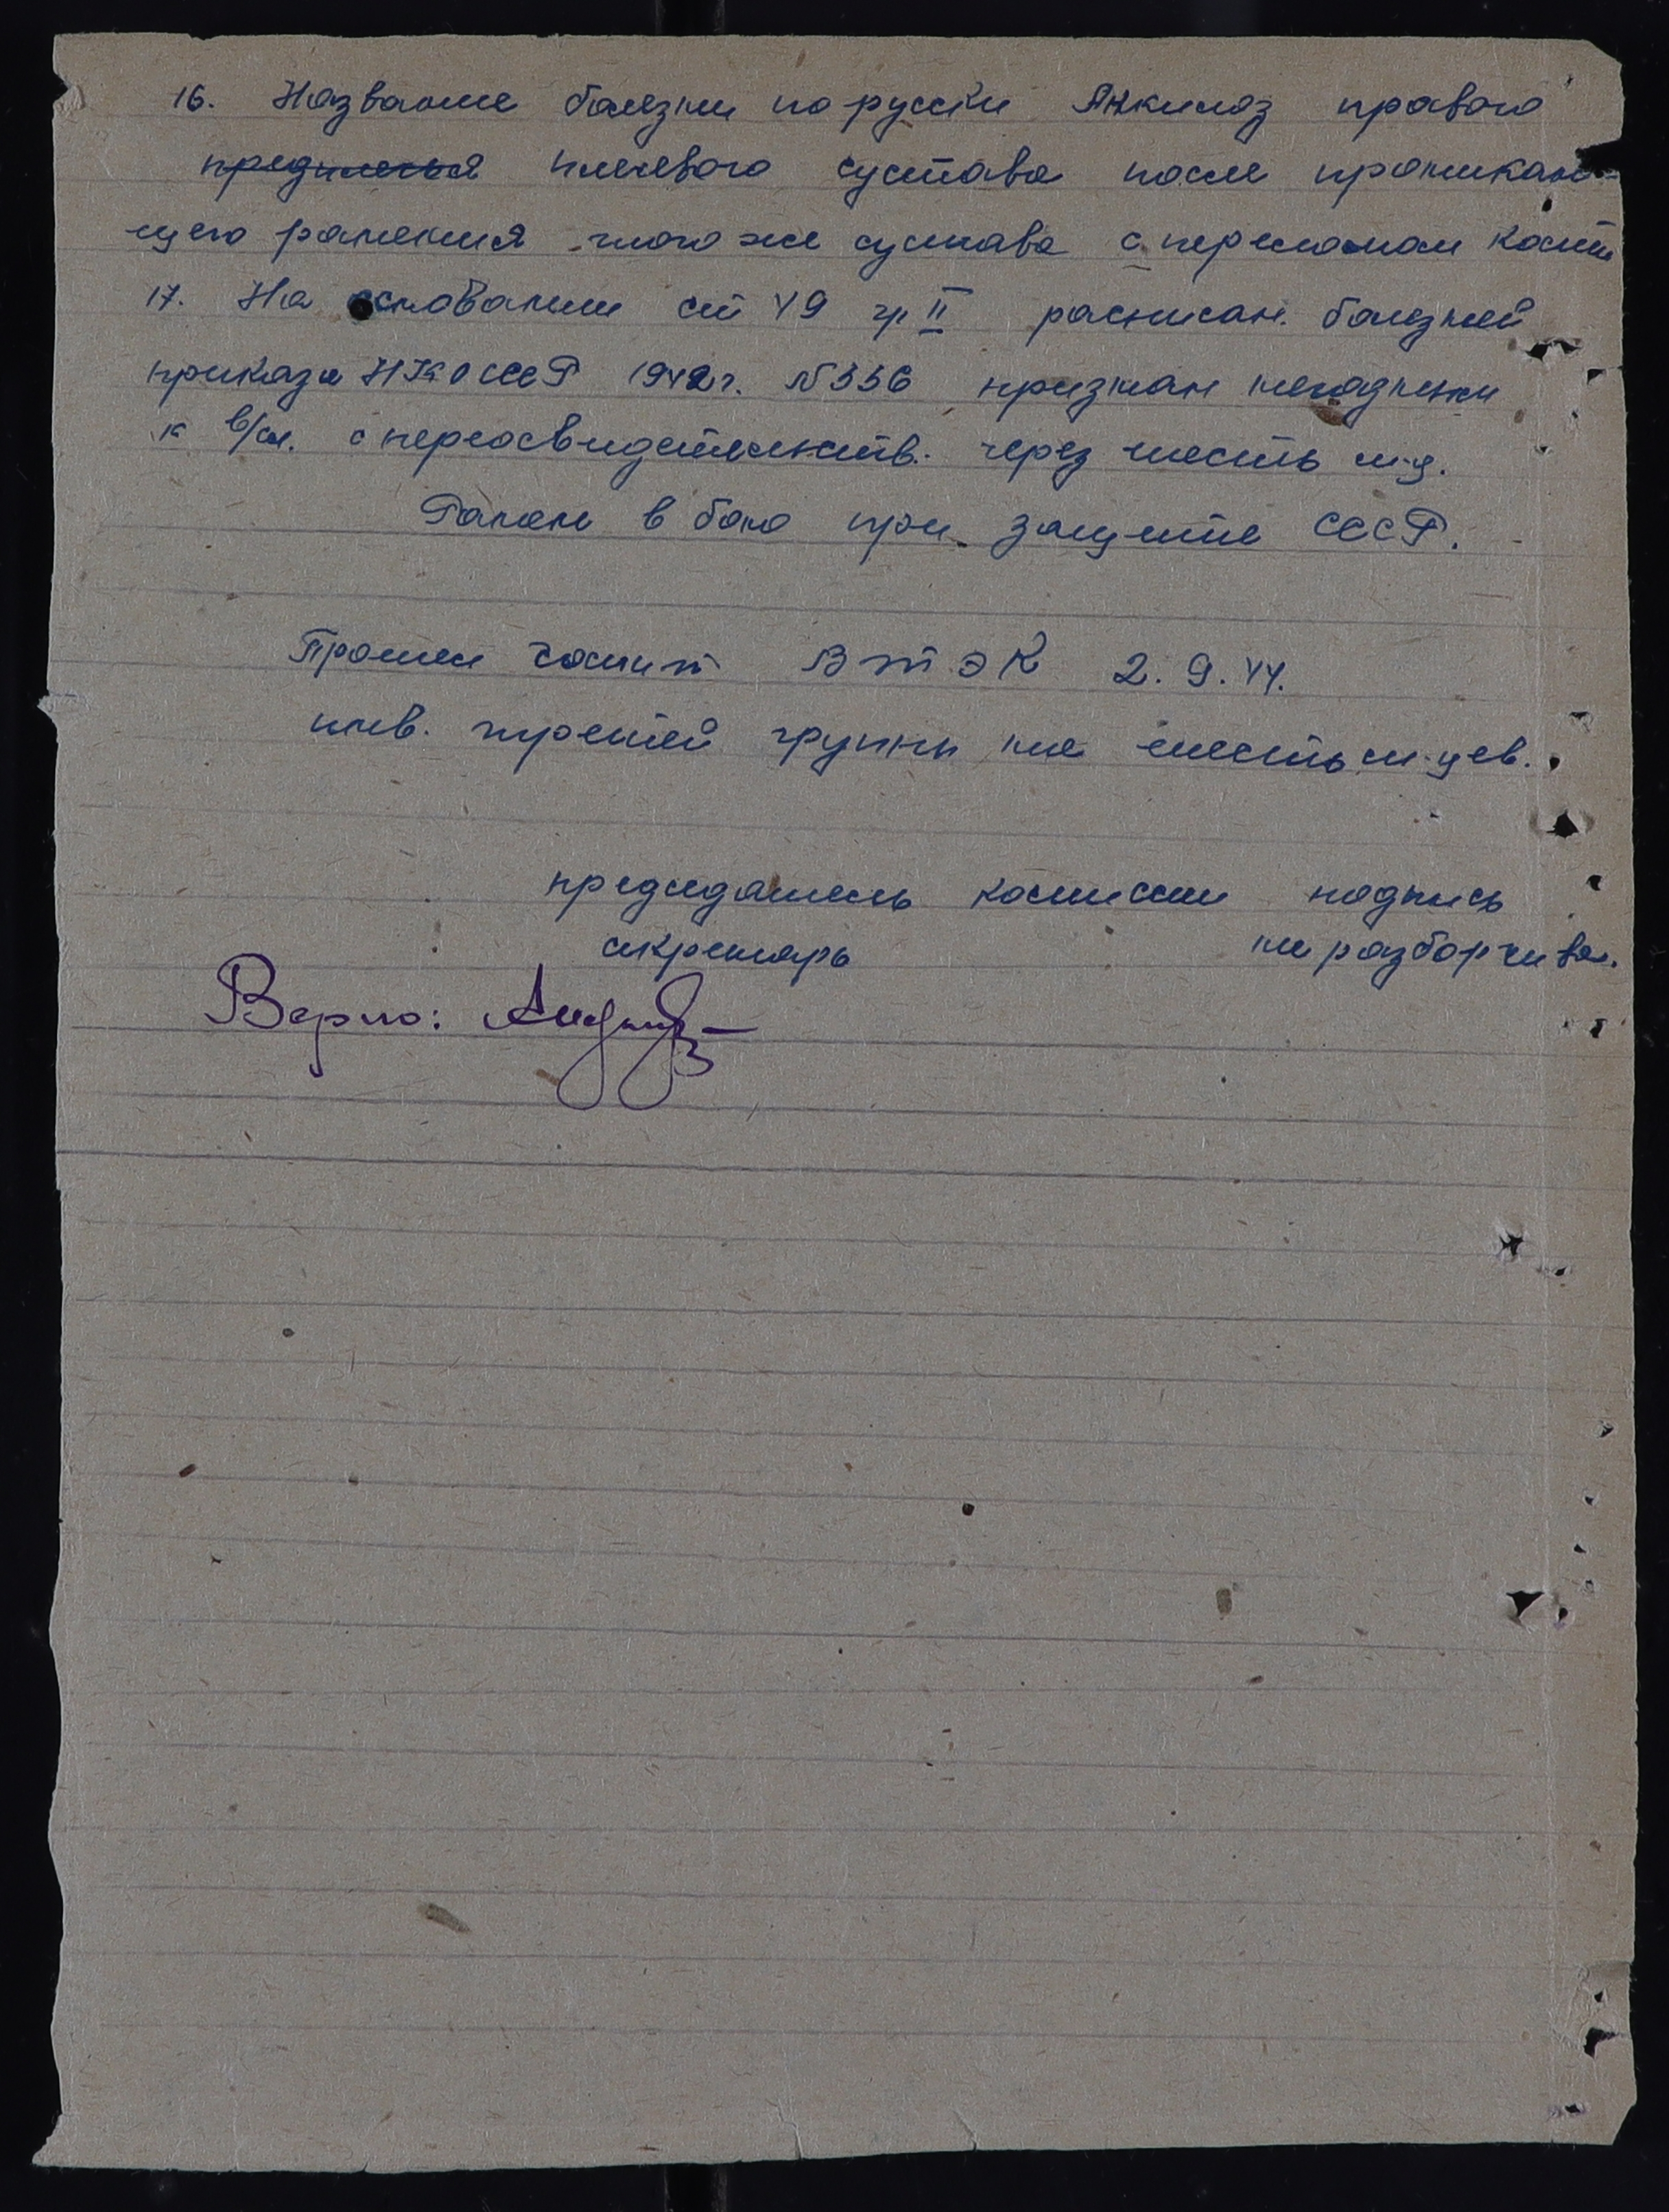 16. Название болезни по русски Анкилоз правого
предплечья плечевого сустава после проникаю-
щего ранения того же сустава с переломом кости
17. На основании ст 49 гр II расписан. болезней
приказа НКО СССР 1942 г. N 336 признан негодным
к в/сл. с переосвидетельств. через шесть м-ц.
Ранен в бою при защите СССР.
Прошел ВТЭК 2.9.44.
инв. третей группы на шесть м-цев.
председатель комиссии подпись
секретарь не разборчива.
Верно: